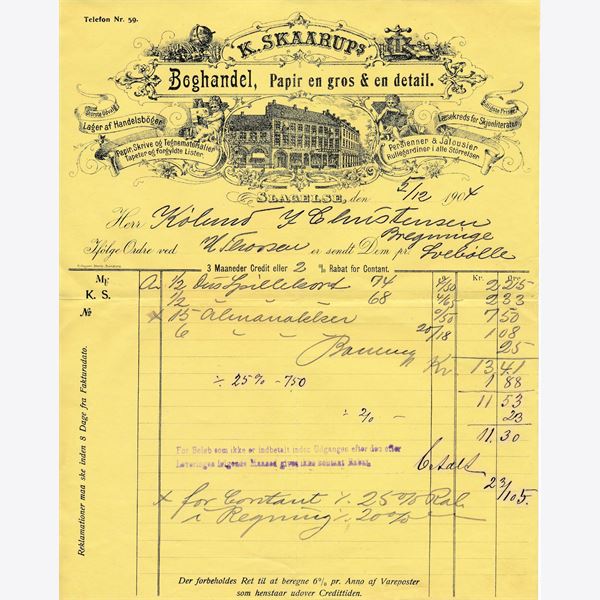 Telefon Nr. 59.
K. SKAARUPS
Boghandel, Papir en gros & en detail.
Største Udvalg
Lager af Handelsbøger
Billigste Priser
Læsekreds for Skjønliteratur
Papir, Skrive og Tegnematerialier
Tapeter og forgyldte Lister
Persienner & Jalousier
Rullegardiner i alle Størrelser
SLAGELSE, den 5/12 1904
Herr Kølund J Christensen
Bregninge
Ifølge Ordre ved er sendt Dem pr. Svebølle
3 Maaneder Credit eller 2 % Rabat for Contant.
Kr. Øre
Mk. K. S. №
1/2 Dus Spillekort 74 4/50 2 25
1/2 " " 68 4/65 2 33
+ 15 Almanakker 0/50 7 50
6 " " " 20/18 1 08
25
Kr. 13 41
÷ 25% - 750 1 88
11 53
÷ 2% - 23
11.30
For Beløb som ikke er indbetalt inden Udgangen efter den efter
Leveringen følgende Maaned gives ikke Contant Rabat
Betalt
23/1 05.
+ for Contant ÷ 25% Rab
i Regning ÷ 20%
Reklamationer maa ske inden 8 Dage fra Fakturadato.
Der forbeholdes Ret til at beregne 6% pr. Anno af Vareposter
som henstaar udover Credittiden.